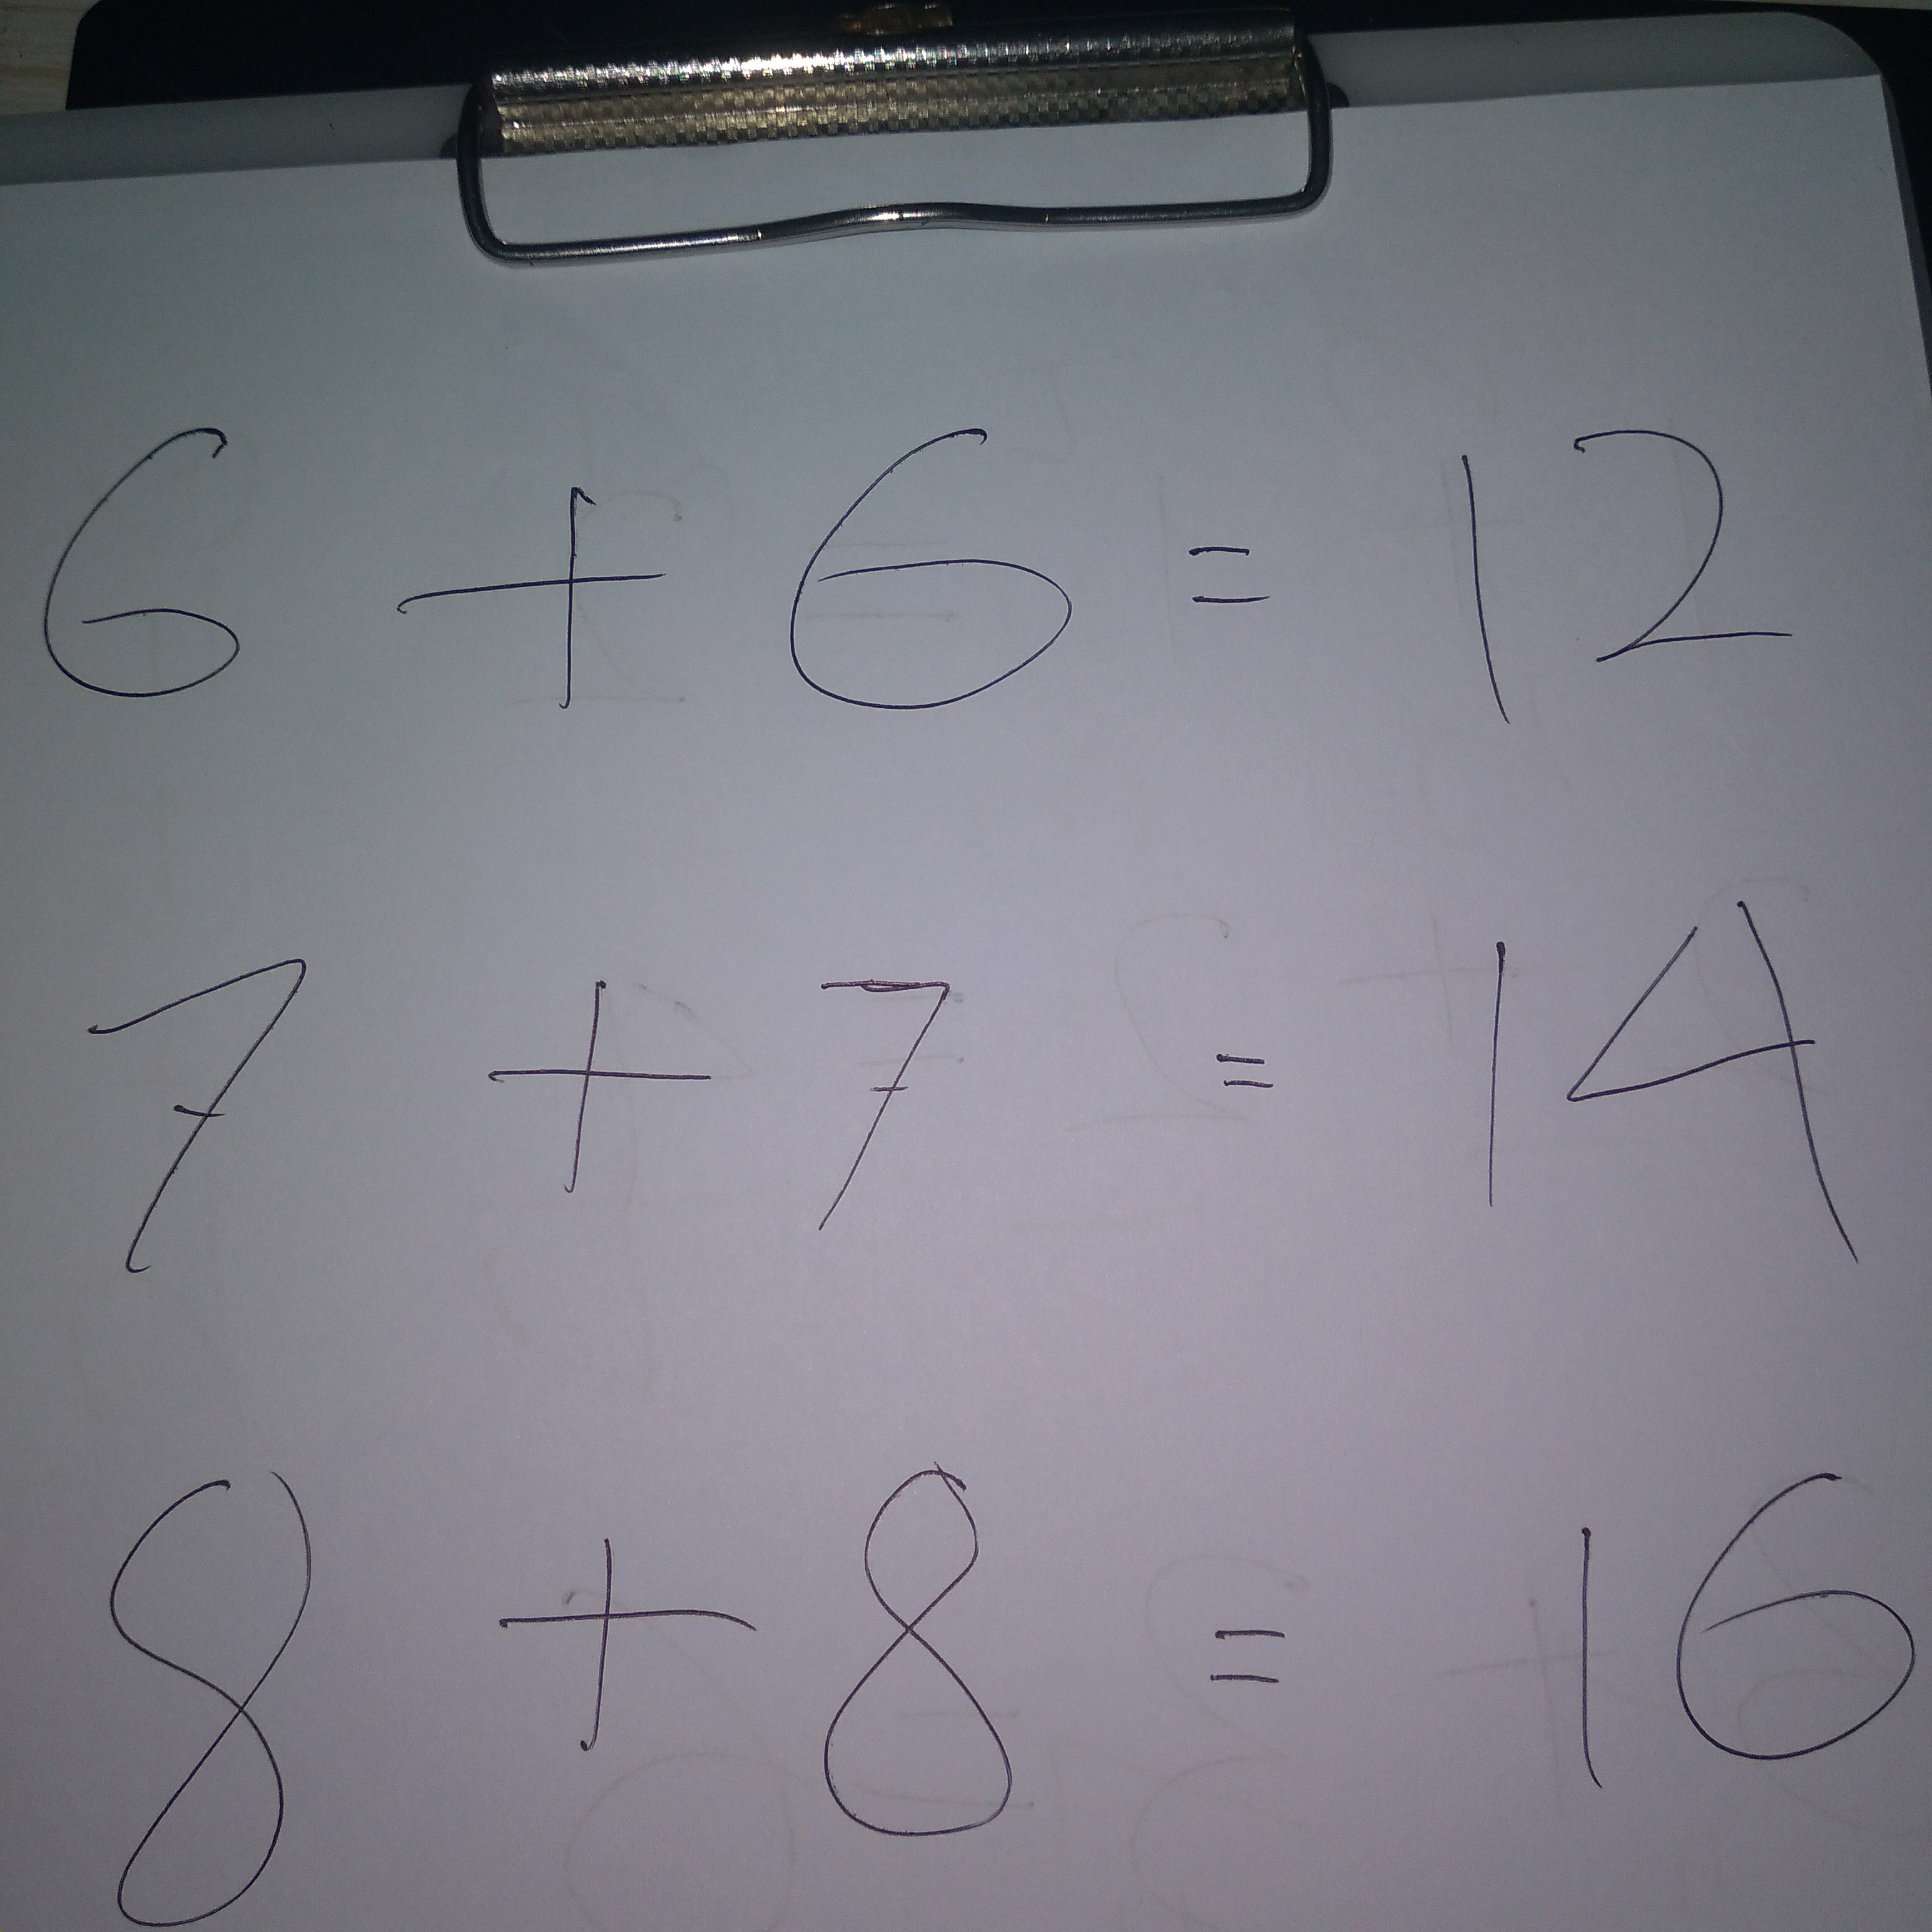 6 + 6 = 12
7 + 7 = 14
8 + 8 = 16